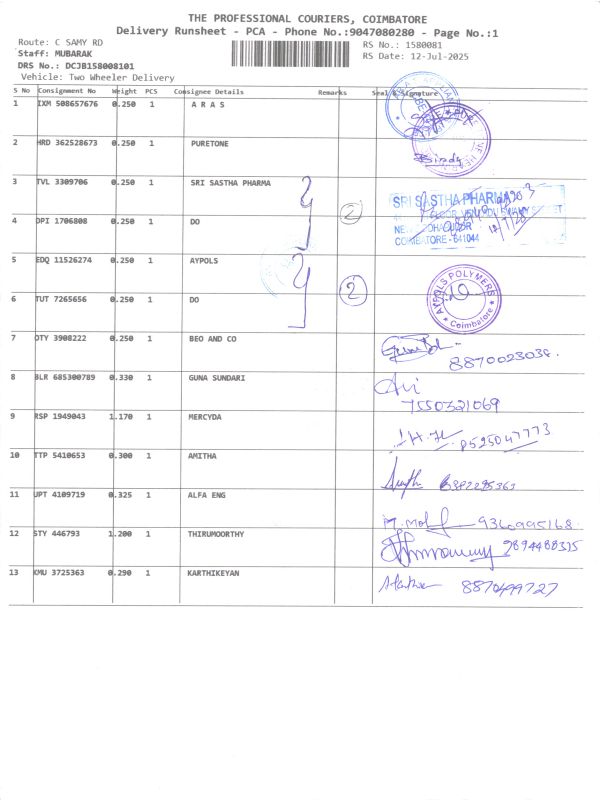 THE PROFESSIONAL COURIERS, COIMBATORE
Delivery Runsheet - PCA - Phone No.:9047080280 - Page No.:1
Route: C SAMY RD
RS No.: 1580081
Staff: MUBARAK
RS Date: 12-Jul-2025
DRS No.: DCJB158008101
Vehicle: Two Wheeler Delivery
S No Consignment No Weight PCS Consignee Details Remarks Seal & Signature
1 IXM 508657676 0.250 1 A R A S
2 HRD 362528673 0.250 1 PURETONE
3 TVL 3309706 0.250 1 SRI SASTHA PHARMA
SRI SASTHA PHARMA
4 DPI 1706808 0.250 1 DO 2
COIMBATORE - 641044
5 EDQ 11526274 0.250 1 AYPOLS
6 TUT 7265656 0.250 1 DO 2
AYPOLS POLYMERS
Coimbatore
7 OTY 3908222 0.250 1 BEO AND CO
8870023038.
8 BLR 685300789 0.330 1 GUNA SUNDARI
7550321069
9 RSP 1949043 1.170 1 MERCYDA
8525047773
10 TTP 5410653 0.300 1 AMITHA
6382285363
11 UPT 4109719 0.325 1 ALFA ENG
9360995168
12 STY 446793 1.200 1 THIRUMOORTHY
9894488315
13 KMU 3725363 0.290 1 KARTHIKEYAN
8870499727